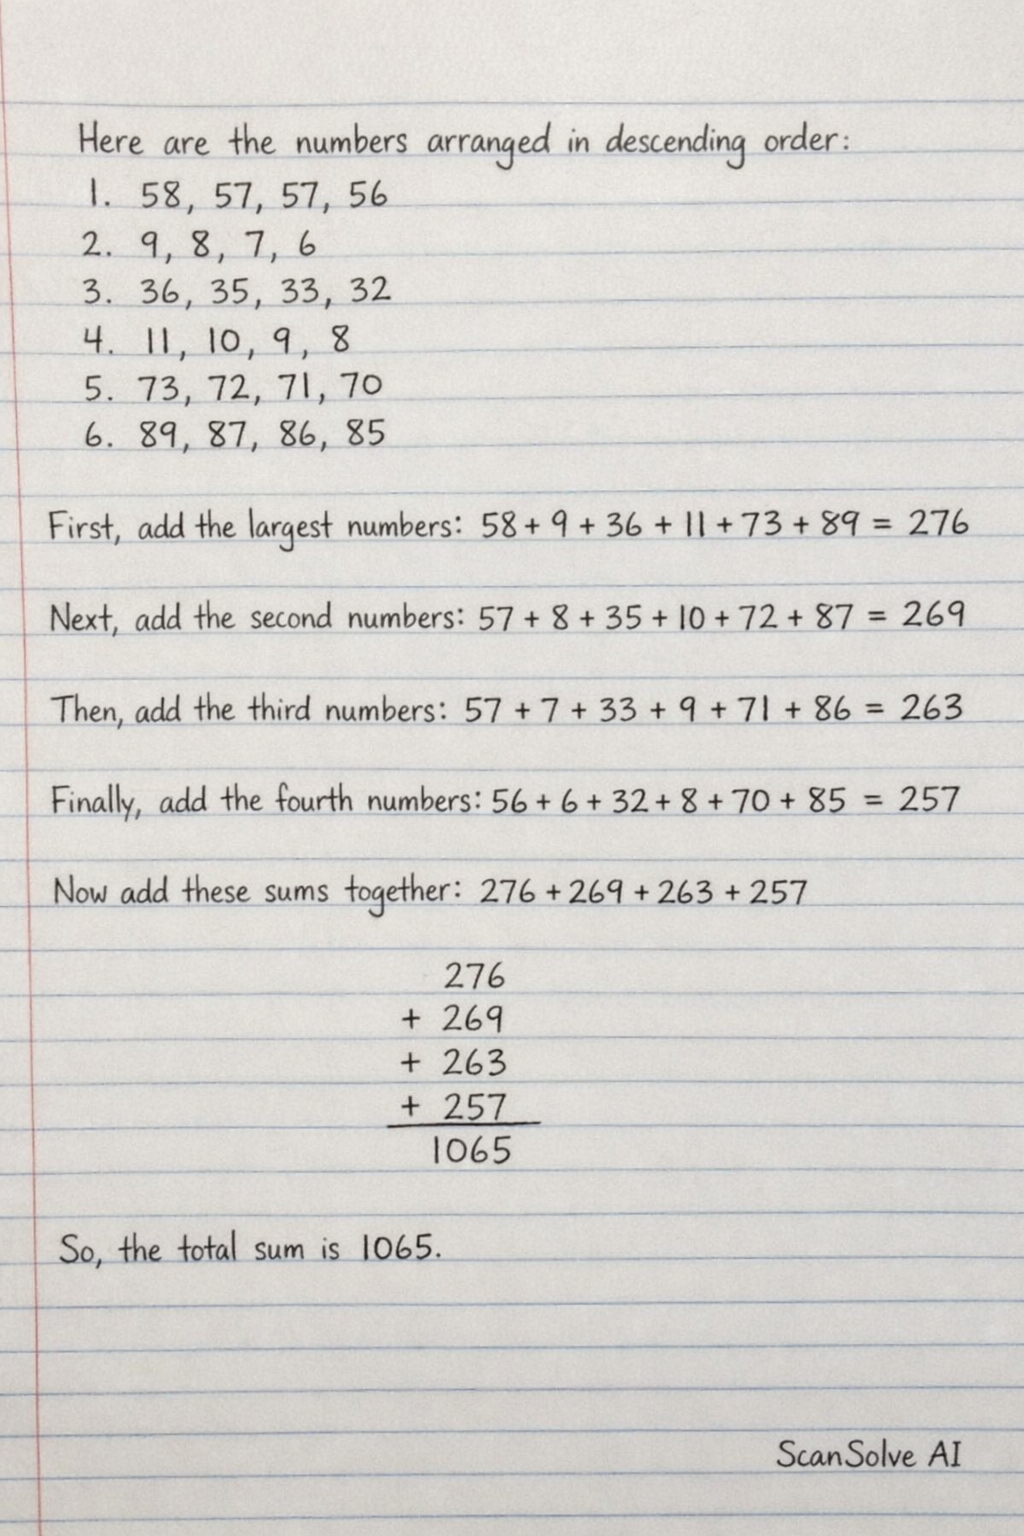 Here are the numbers arranged in descending order:
1. 58, 57, 57, 56
2. 9, 8, 7, 6
3. 36, 35, 33, 32
4. 11, 10, 9, 8
5. 73, 72, 71, 70
6. 89, 87, 86, 85
First, add the largest numbers: 58 + 9 + 36 + 11 + 73 + 89 = 276
Next, add the second numbers: 57 + 8 + 35 + 10 + 72 + 87 = 269
Then, add the third numbers: 57 + 7 + 33 + 9 + 71 + 86 = 263
Finally, add the fourth numbers: 56 + 6 + 32 + 8 + 70 + 85 = 257
Now add these sums together: 276 + 269 + 263 + 257
276
+ 269
+ 263
+ 257
1065
So, the total sum is 1065.
ScanSolve AI